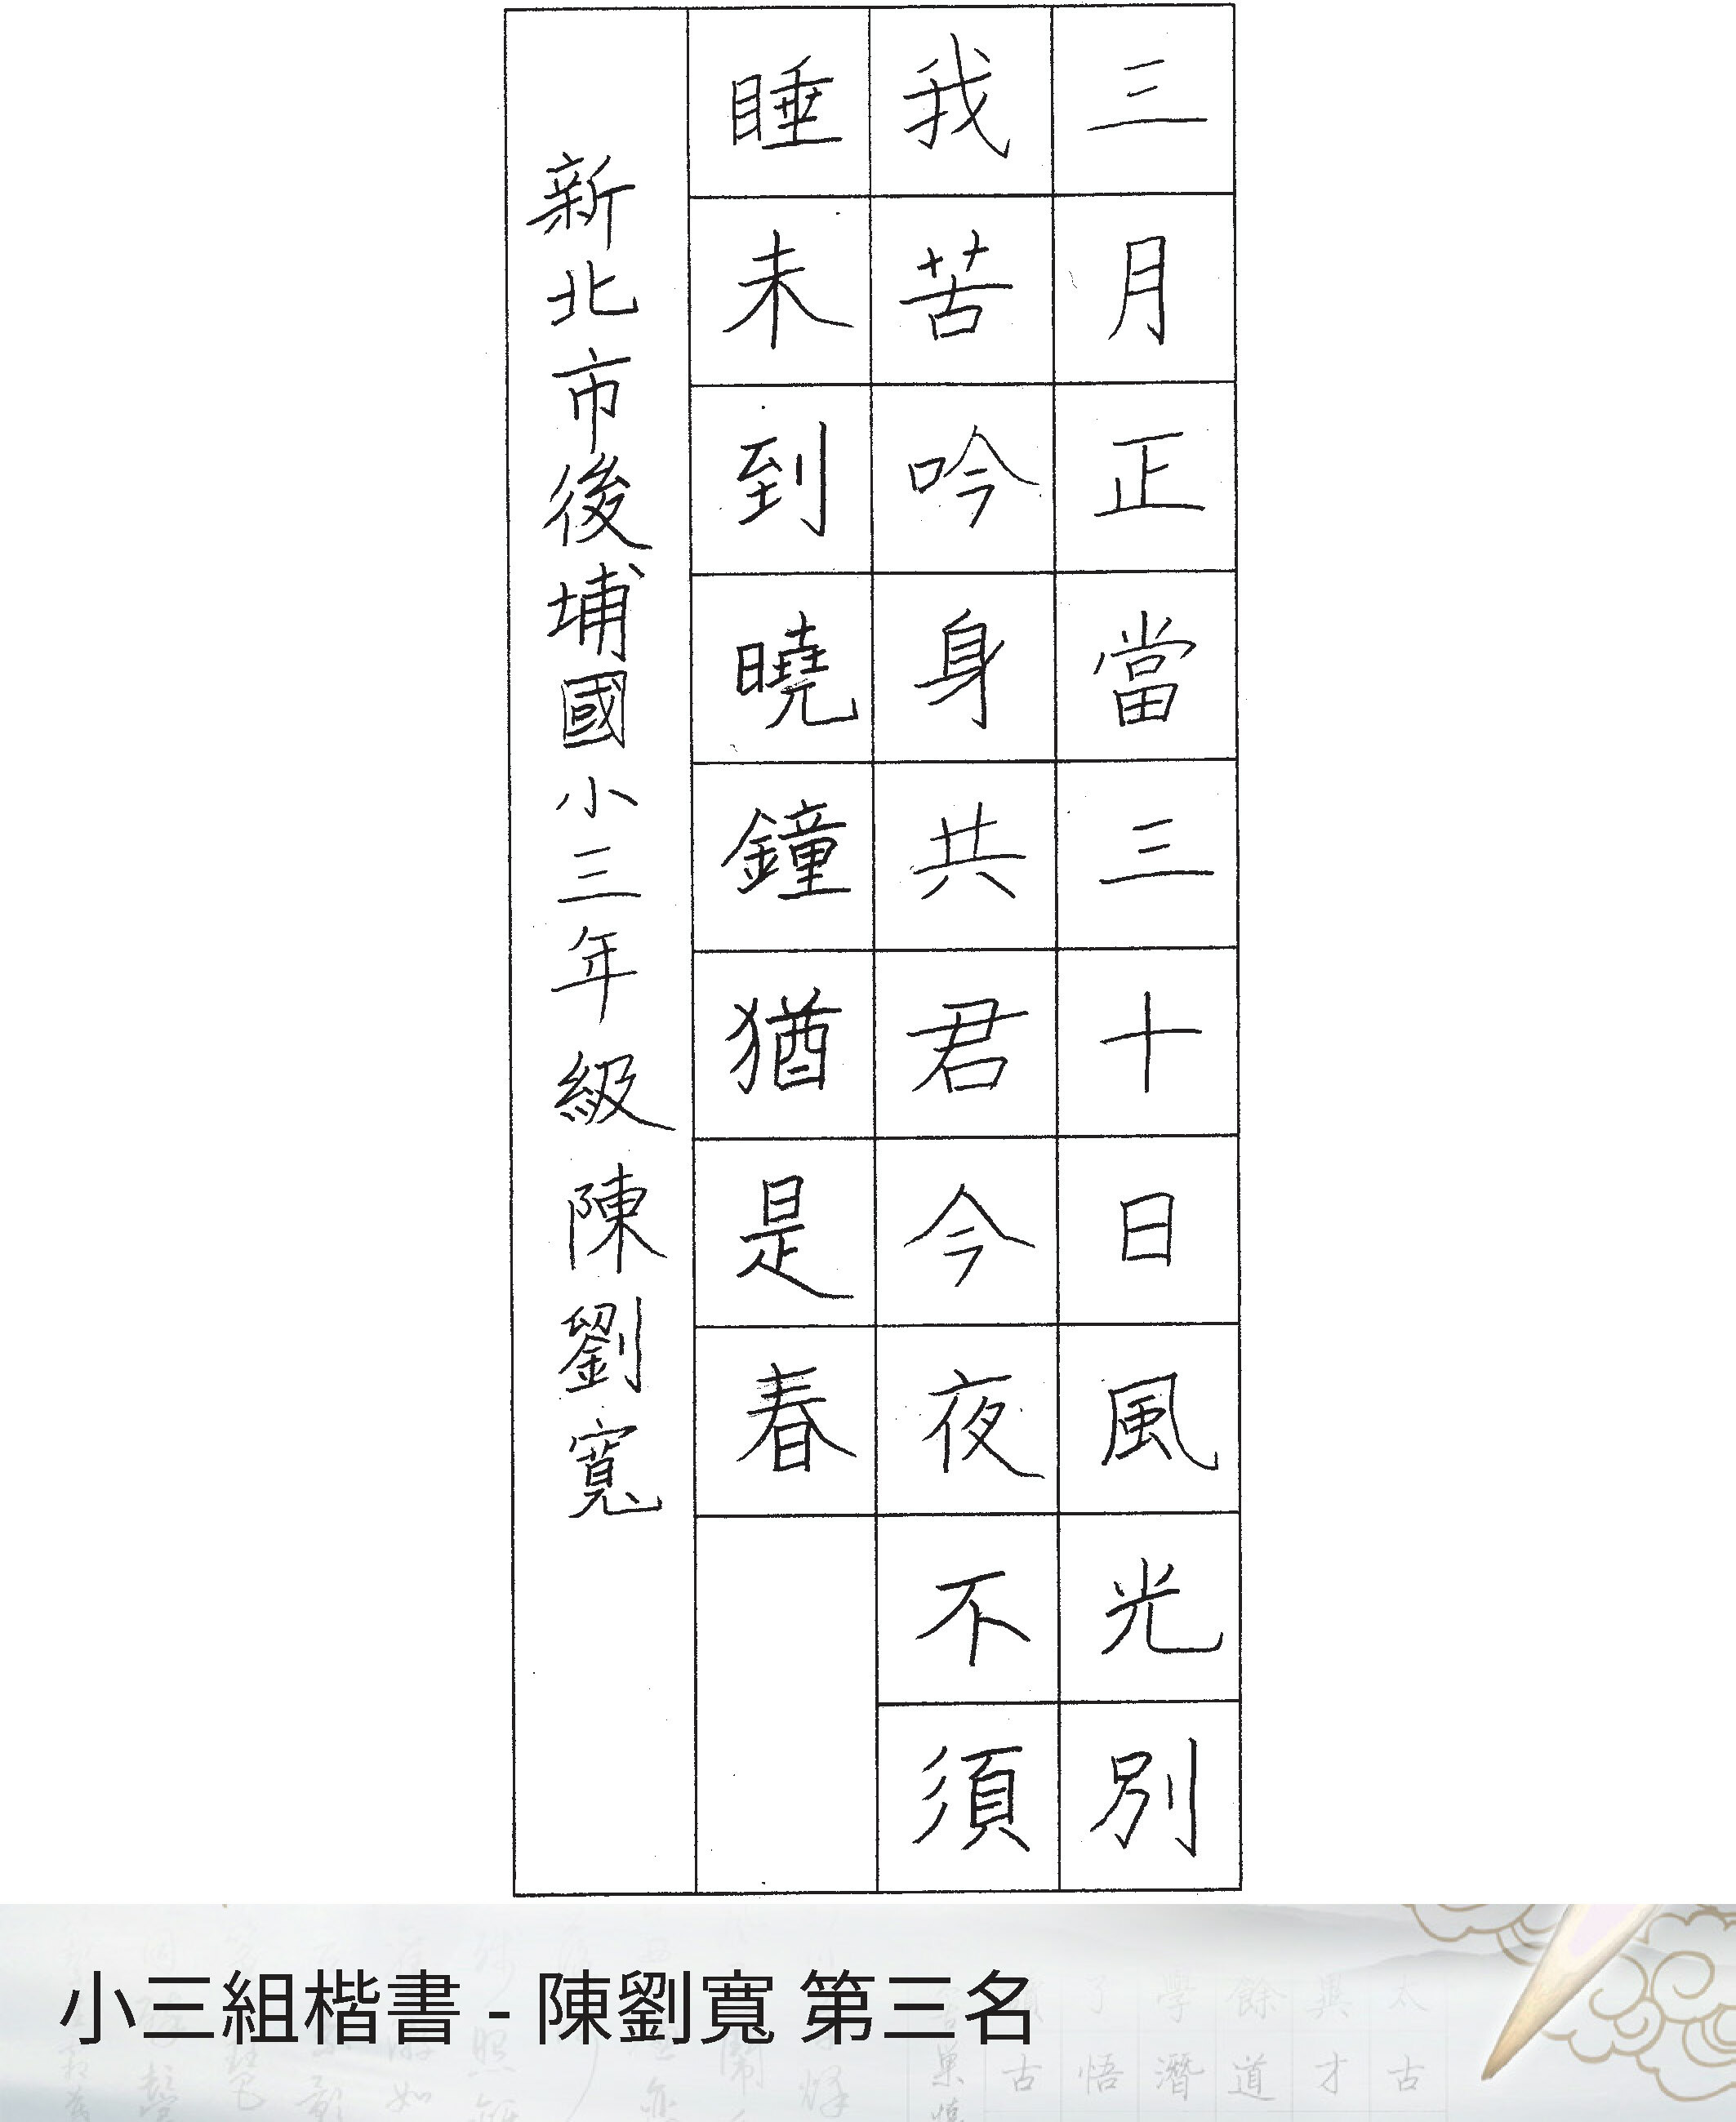 三月正當三十日風光別
我苦吟身共君今夜不須
睡未到曉鐘猶是春
新北市後埔國小三年級陳劉寬
小三組楷書 - 陳劉寬 第三名